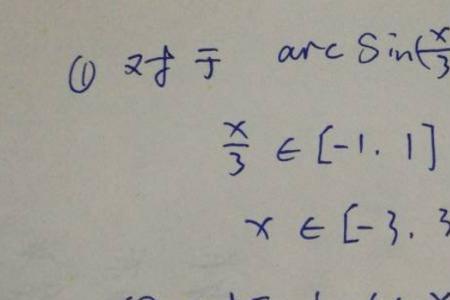 ① 对于 arc Sin(x/3
x/3 ∈ [-1. 1]
x ∈ [-3. 3